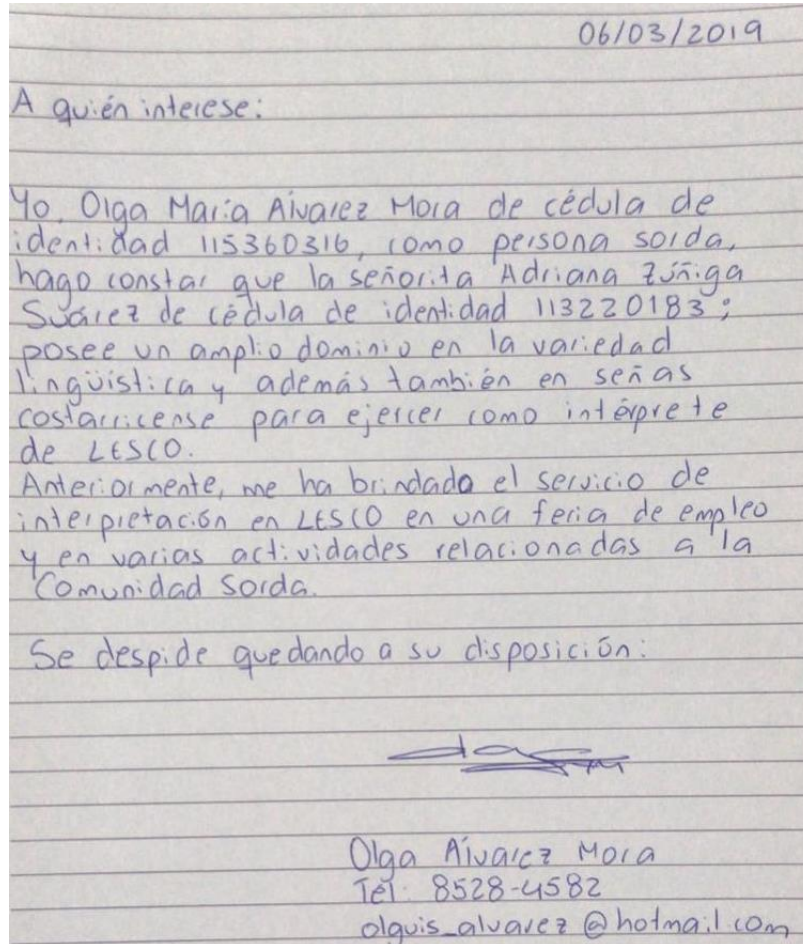 06/03/2019
A quién interese:
Yo, Olga María Alvarez Mora de cédula de
identidad 115360316, como persona sorda,
hago constar que la señorita Adriana Zúñiga
Suárez de cédula de identidad 113220183;
posee un amplio dominio en la variedad
lingüística y además también en señas
costarricense para ejercer como intérprete
de LESCO.
Anteriormente, me ha brindado el servicio de
interpretación en LESCO en una feria de empleo
y en varias actividades relacionadas a la
Comunidad Sorda.
Se despide quedando a su disposición:
Olga Alvarez Mora
Tel: 8528-4582
olguis_alvarez@hotmail.com